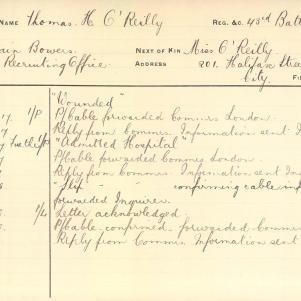 NAME Thomas H O'Reilly REG. &C. 43rd Batt
Bowers. NEXT OF KIN Miss O'Reilly.
Recruiting Office. ADDRESS 201. Halifax Stree
City.
"Wounded"
1/8 P/Cable forwarded Commrs London.
Reply from Commrs. Information sent I
"Admitted Hospital"
P/Cable forwarded Commrs London.
Reply from Commrs. Information sent In
- confirming cable inf
forwarded Inquirer.
1/4 Letter acknowledged.
P/Cable confirmed forwarded Comme
Reply from Commrs Information sent